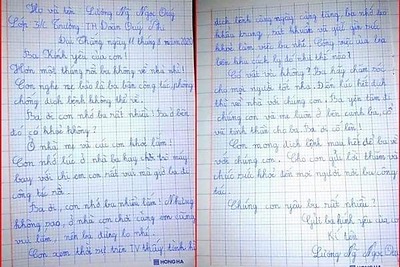 Họ và tên: Lương Ng Ngọc Quý
Lớp 3/2 Trường TH Đoàn Quý Phi
Đại Thắng ngày 11 tháng 3 năm 2020
Ba kính yêu của con!
Hơn một tháng rồi ba không về nhà nhỉ!
Con nghe mẹ bảo là ba bận công tác, phòng
chống dịch bệnh không thể về.
Ba ơi con nhớ ba rất nhiều! Ba ở bên
đó có khỏe không?
Ở nhà mẹ và con khỏe lắm!
Con nhớ lúc ở nhà ba hay chơi trò máy
bay với chị em con rất vui mà giờ ba đi
công tác rồi
Ba ơi, con nhớ ba nhiều lắm! Nhưng
không sao, ở nhà con chơi cùng em cũng
vui lắm, nên ba đừng lo nhé.
Con xem thời sự trên TV thấy tình hình
HONG HA
dịch bệnh càng ngày càng tăng, ba nhớ đeo
khẩu trang, sát khuẩn và giữ gìn sức
khỏe làm việc ba nhé. Công việc của ba
bên khu cách ly đó như thế nào?
Có vất vả không? Ba hãy chăm sóc
cho mọi người tốt nhé. Đến lúc hết dịch
thì về nhà với chúng con. Ba yên tâm đi
chúng con và mẹ luôn ở bên cạnh ba, cổ
vũ tinh thần cho ba. Ba ơi cố lên!
Con mong dịch bệnh mau hết để ba về
với chúng con. Cho con gửi lời thăm và
chúc sức khỏe đến mọi người nơi ba công
tác.
Chúng con yêu ba rất nhiều!
Gửi ba kính yêu của con
Kí tên
Lương Ng Ngọc Quý
HONG HA